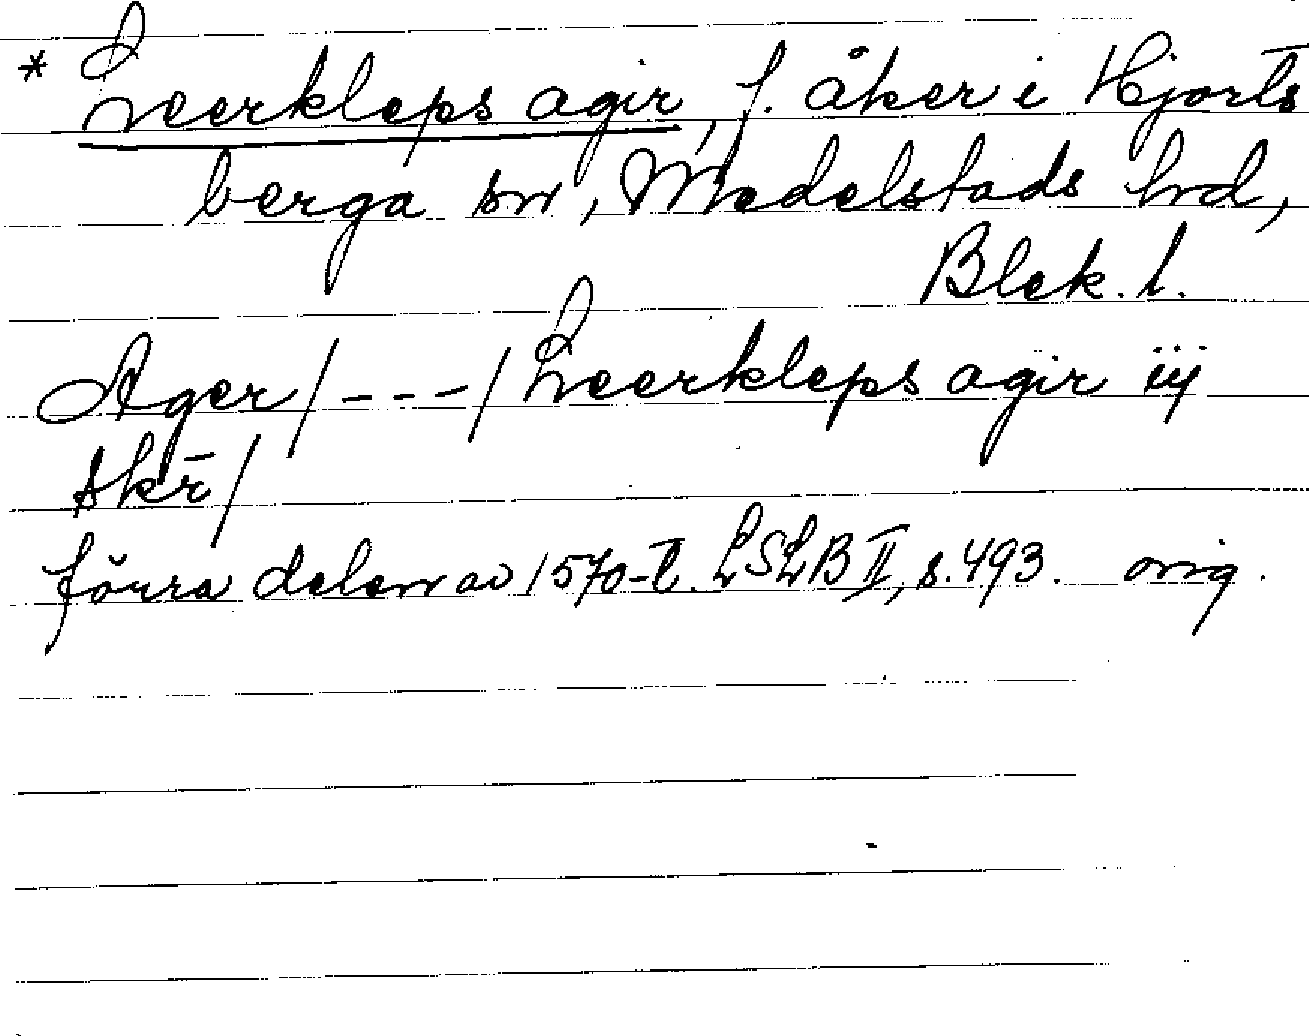 * Leerkleps agir, f. åker i Hjorts
berga sn, Medelstads hd,
Blek. l.
Ager/---/Leerkleps agir iij
skr̄/
förra delen av 1570-t. LSLB II, s. 493. orig.